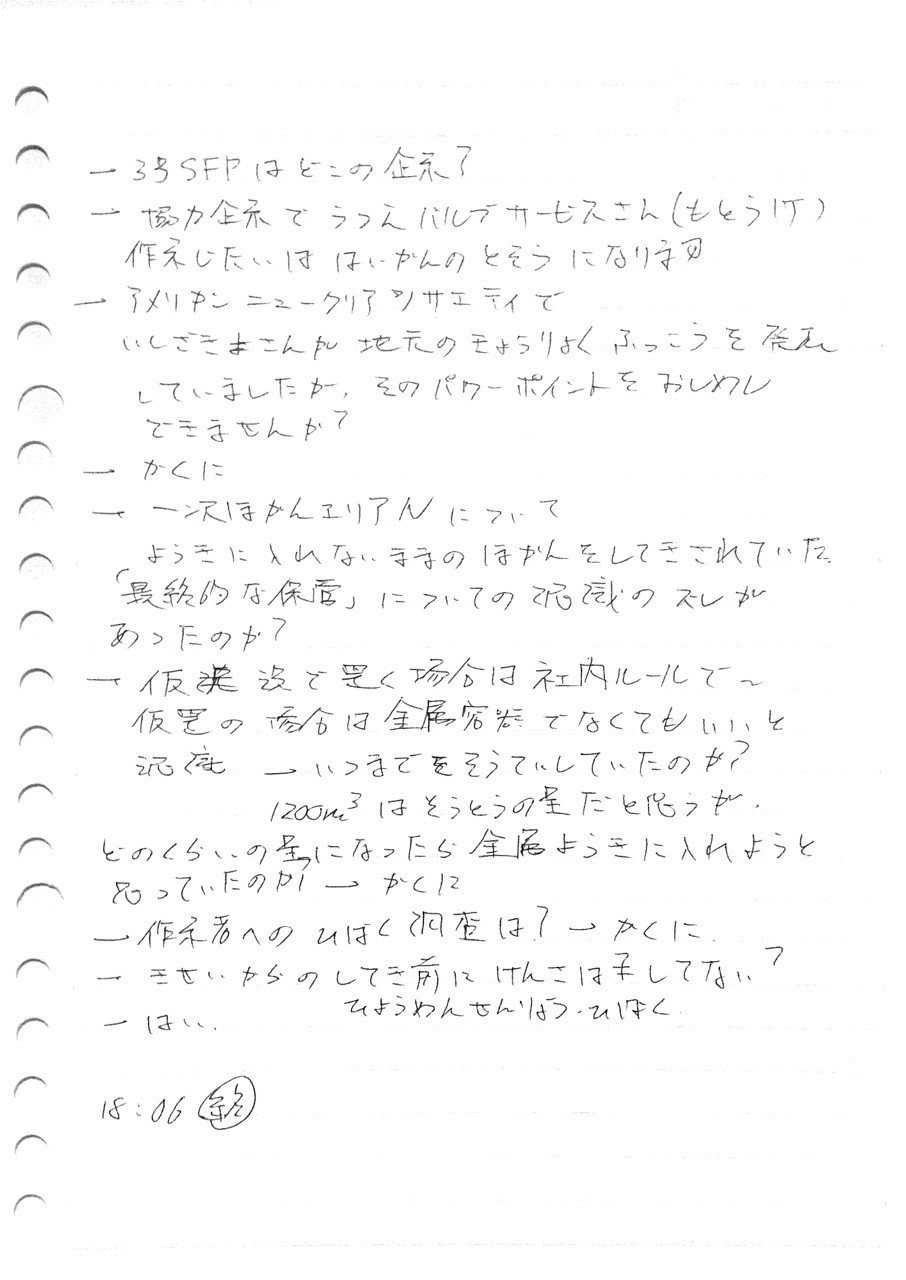 — 3号SFPはどこの企業?
— 協力企業でうつえバルブサービスさん(もとうけ)
作業じたいははいかんのとそうになります
— アメリカンニュークリアソサエティで
いしざきさんが地元のきょうりょくふっこうを発表
していましたが、そのパワーポイントをおしめし
できませんか?
— かくに
— 一次ほかんエリアNについて
ようきに入れないままのほかんをしてきされていた
「最終的な保管」についての認識のズレが
あったのか?
— 仮設で置く場合は社内ルールで〜
仮置の場合は金属容器でなくてもいいと
認識 → いつまでをそうていしていたのか?
1200m³はそうとうの量だと思うが、
どのくらいの量になったら金属ようきに入れようと
思っていたのか? → かくに
— 作業者へのひばく調査は? → かくに
— きせいからのしてき前にけんさは してない?
ひょうめんせんりょう・ひばく
— はい、
18:06 終